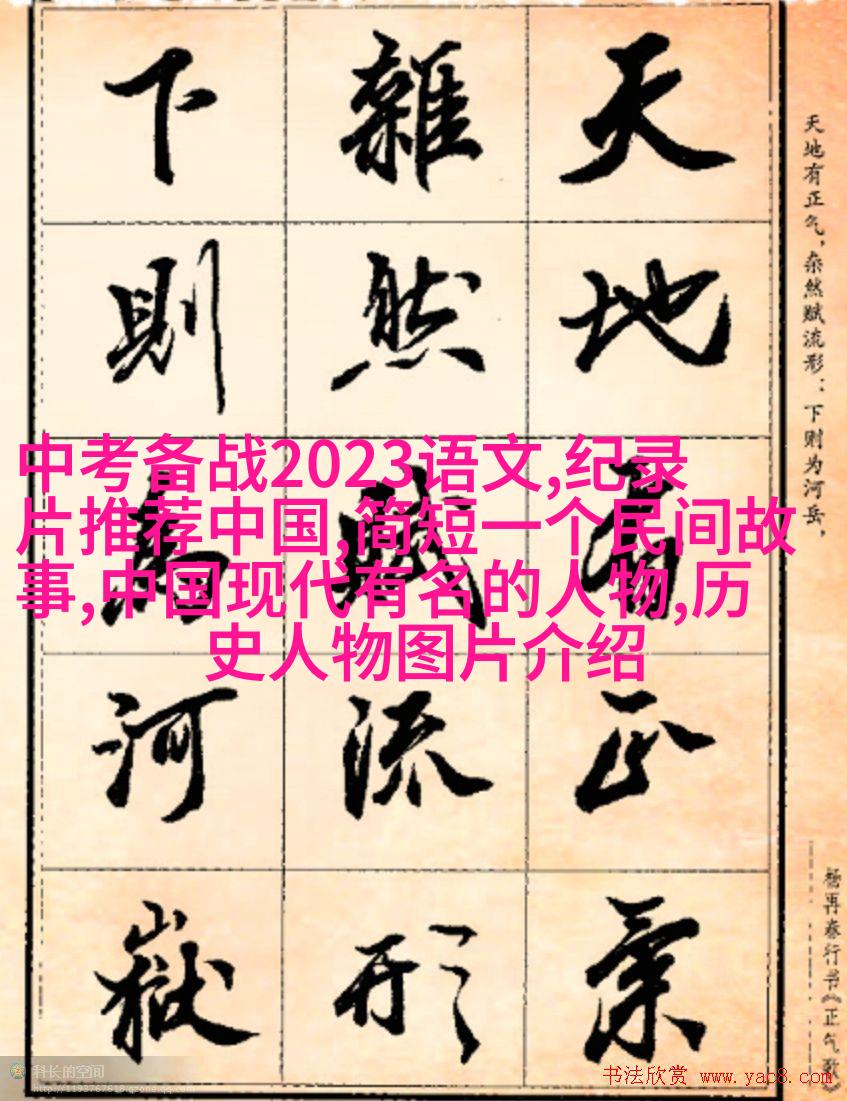 天地有正气
雜然賦流形
下則為河嶽
天地有正气，杂然赋流形：下则为河岳，
杨再春行书《正气歌》
中考备战2023语文,纪录
片推荐中国,简短一个民间故
事,中国现代有名的人物,历
史人物图片介绍
科长的空间
http://1193767618.qzone.qq.com
书法欣赏 www.yac8.com